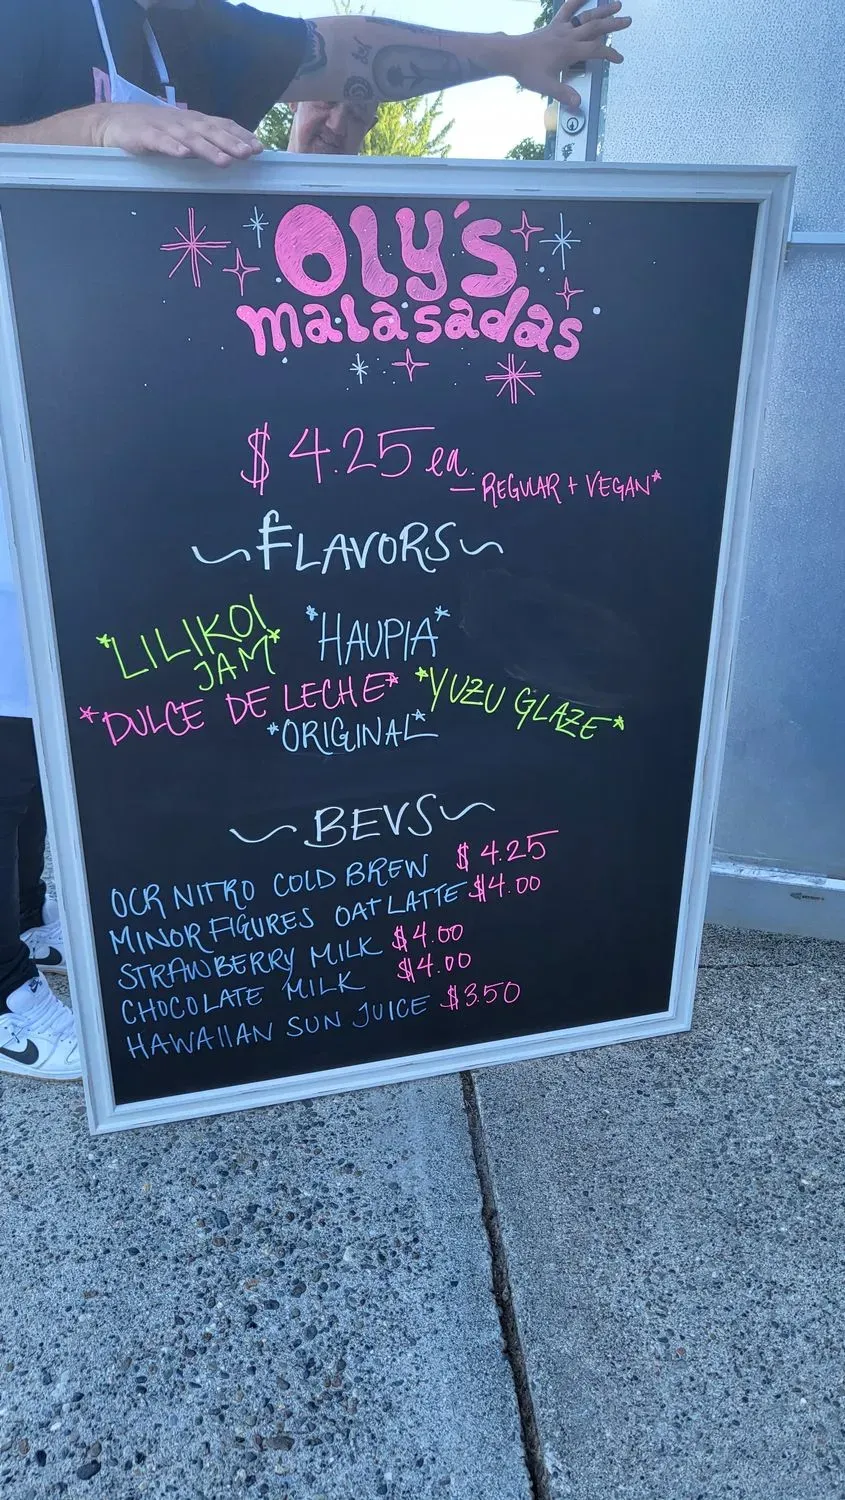 OLY'S
malasadas
$ 4.25 ea.
— REGULAR + VEGAN*
~FLAVORS~
*LILIKOI JAM* *HAUPIA*
*DULCE DE LECHE* *YUZU GLAZE*
*ORIGINAL*
~BEVS~
OCR NITRO COLD BREW $4.25
MINOR FIGURES OAT LATTE $4.00
STRAWBERRY MILK $4.00
CHOCOLATE MILK $4.00
HAWAIIAN SUN JUICE $3.50